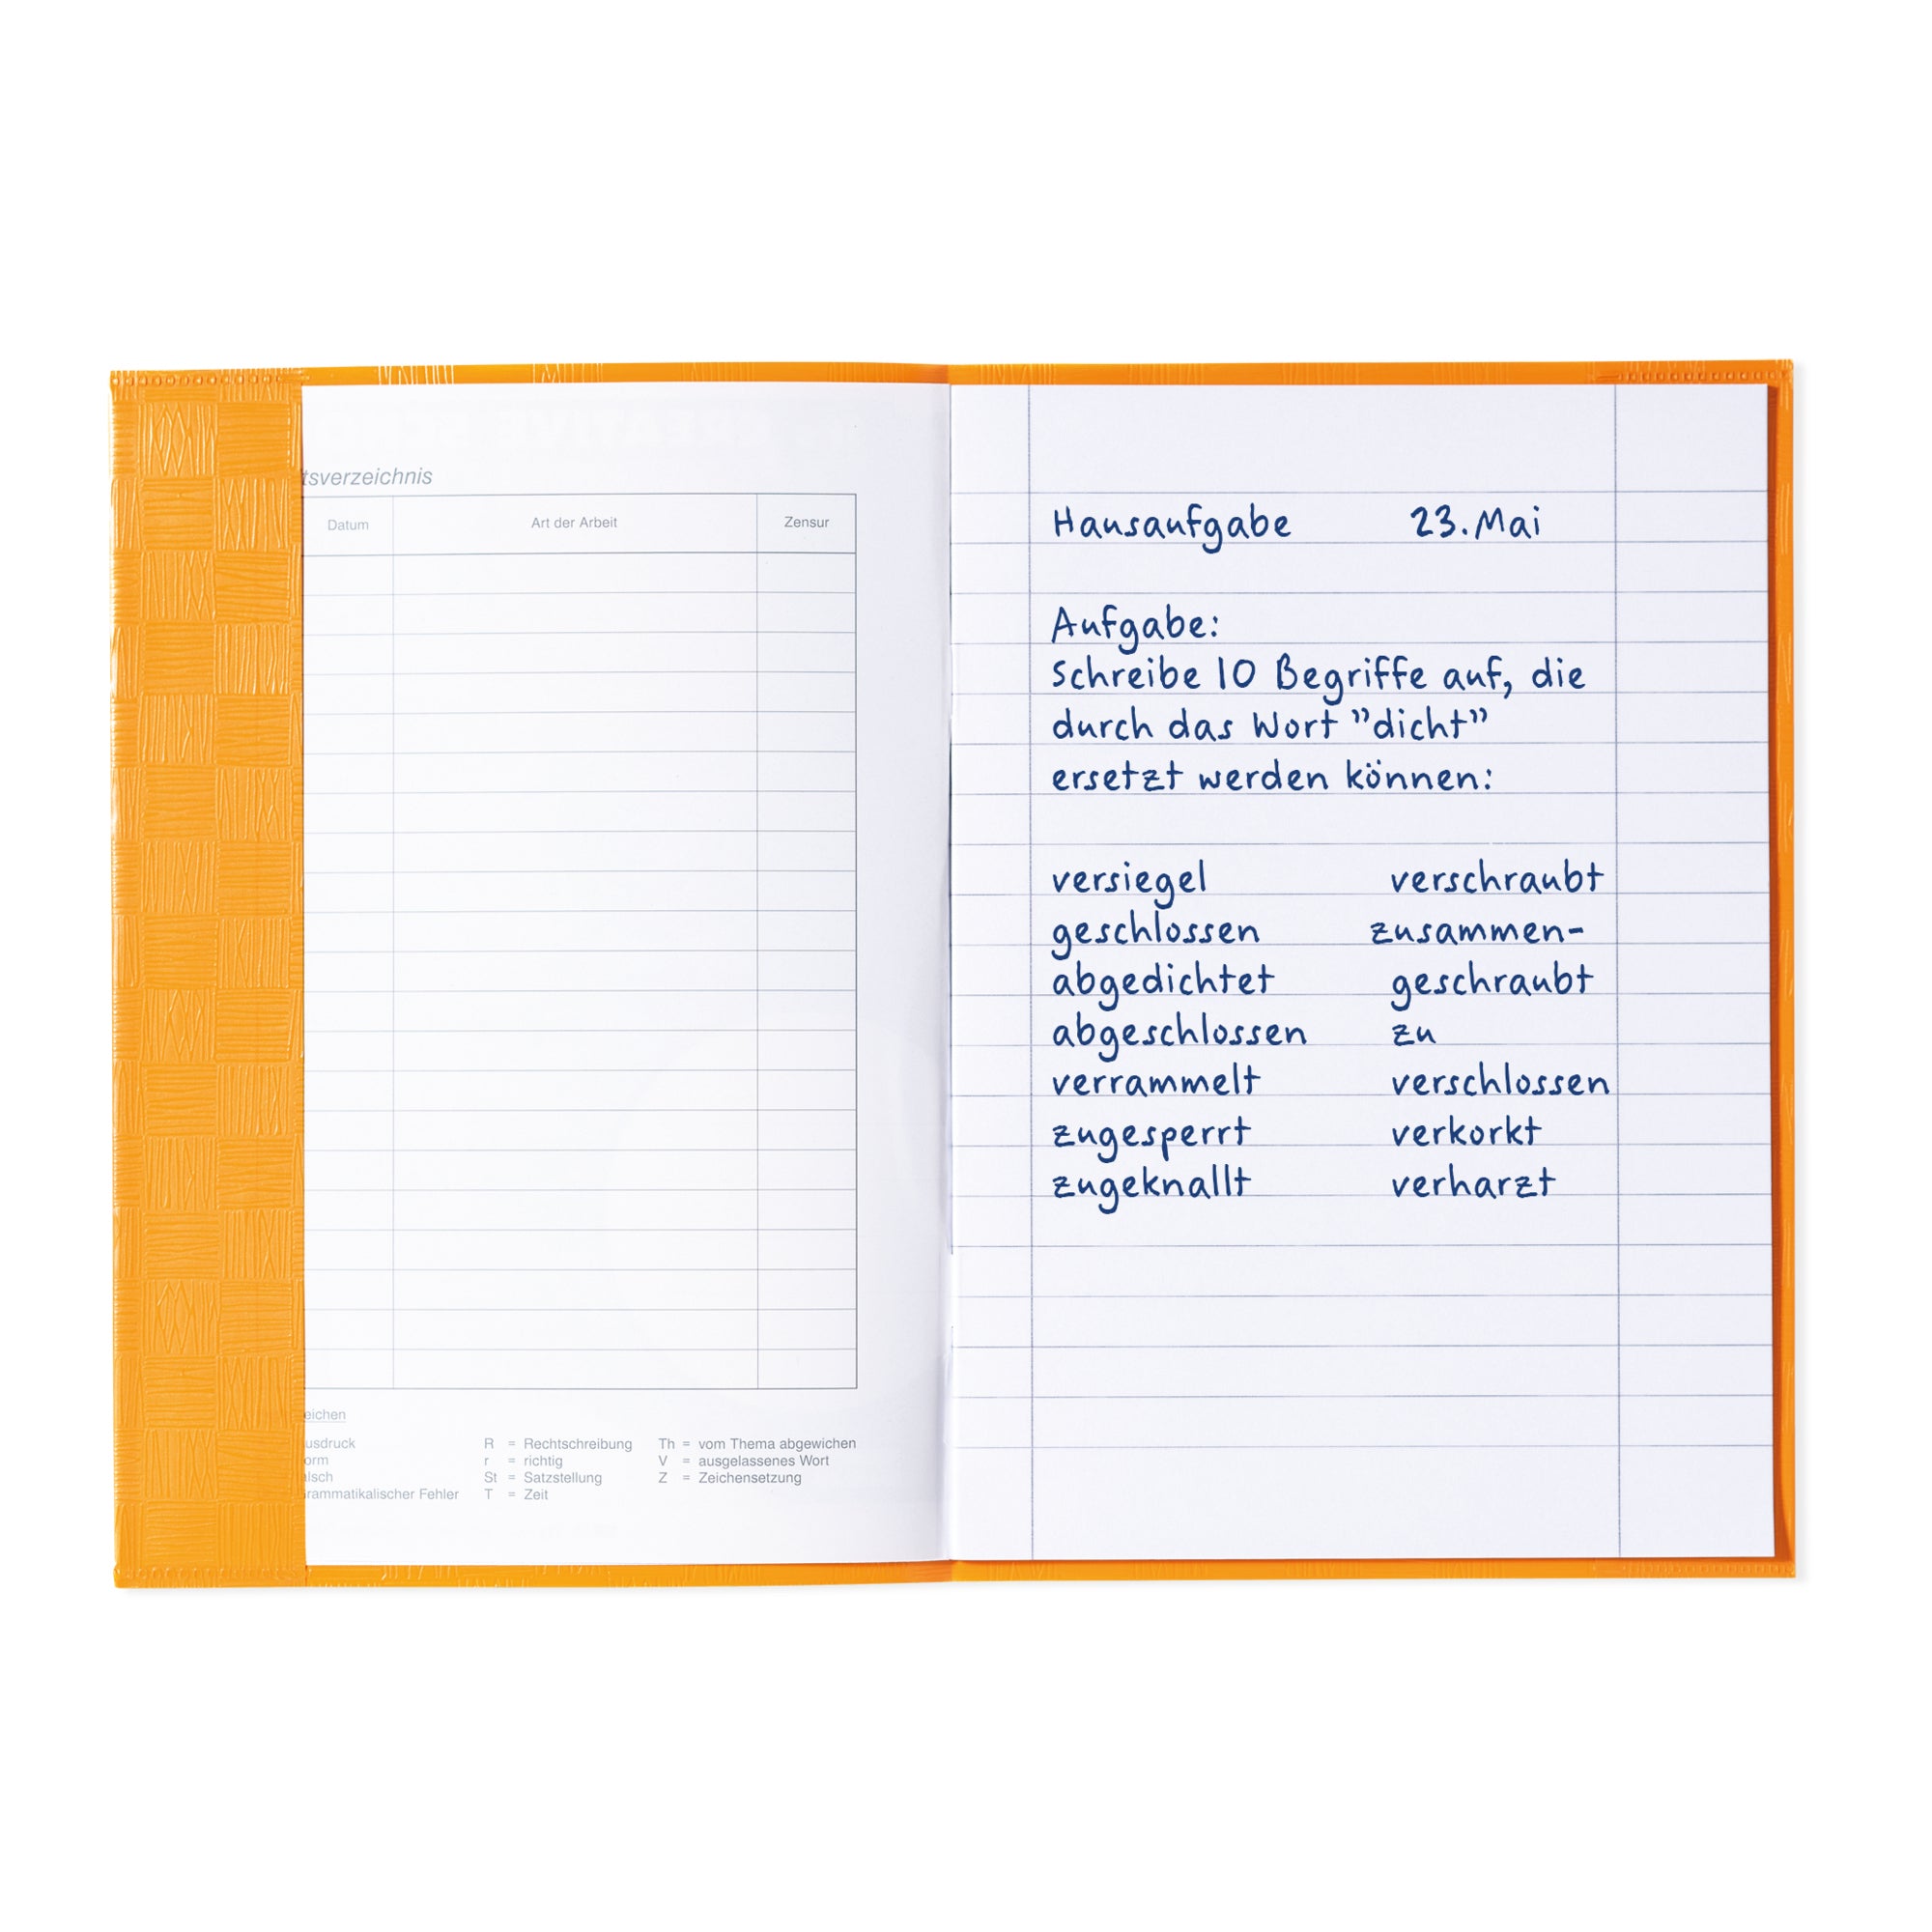 tsverzeichnis
Datum Art der Arbeit Zensur
eichen
usdruck R = Rechtschreibung Th = vom Thema abgewichen
orm r = richtig V = ausgelassenes Wort
alsch St = Satzstellung Z = Zeichensetzung
rammatikalischer Fehler T = Zeit
Hausaufgabe 23. Mai
Aufgabe:
Schreibe 10 Begriffe auf, die
durch das Wort "dicht"
ersetzt werden können:
versiegel
geschlossen
abgedichtet
abgeschlossen
verrammelt
zugesperrt
zugeknallt
verschraubt
zusammen-
geschraubt
zu
verschlossen
verkorkt
verharzt